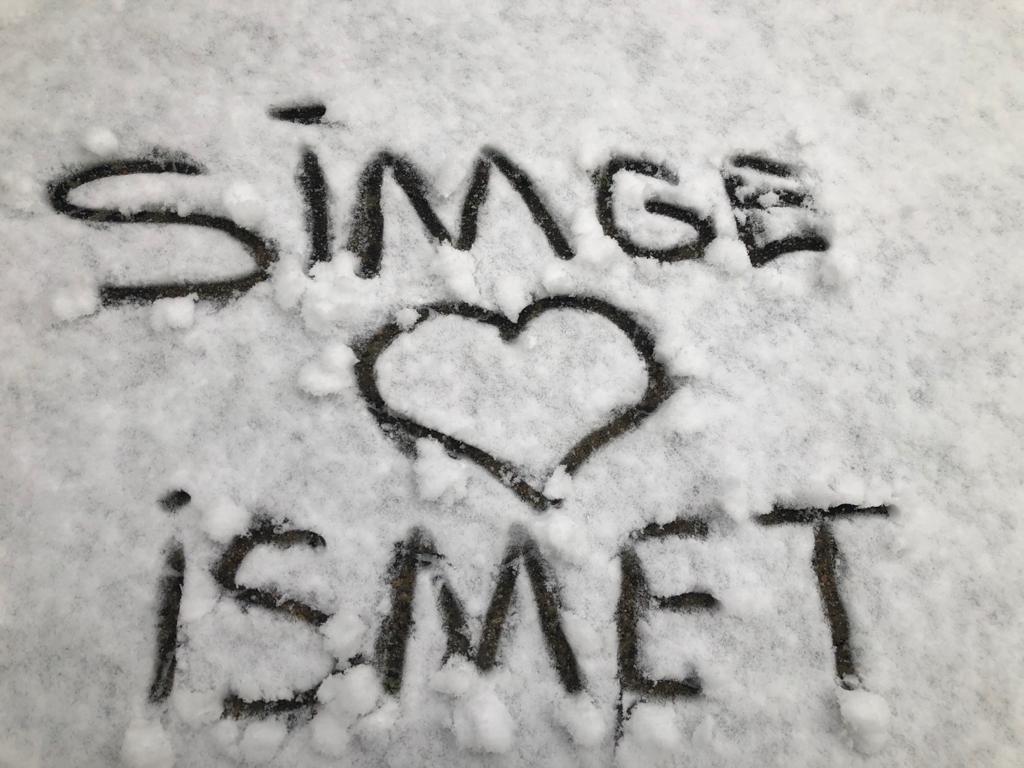 SİMGE
İSMET